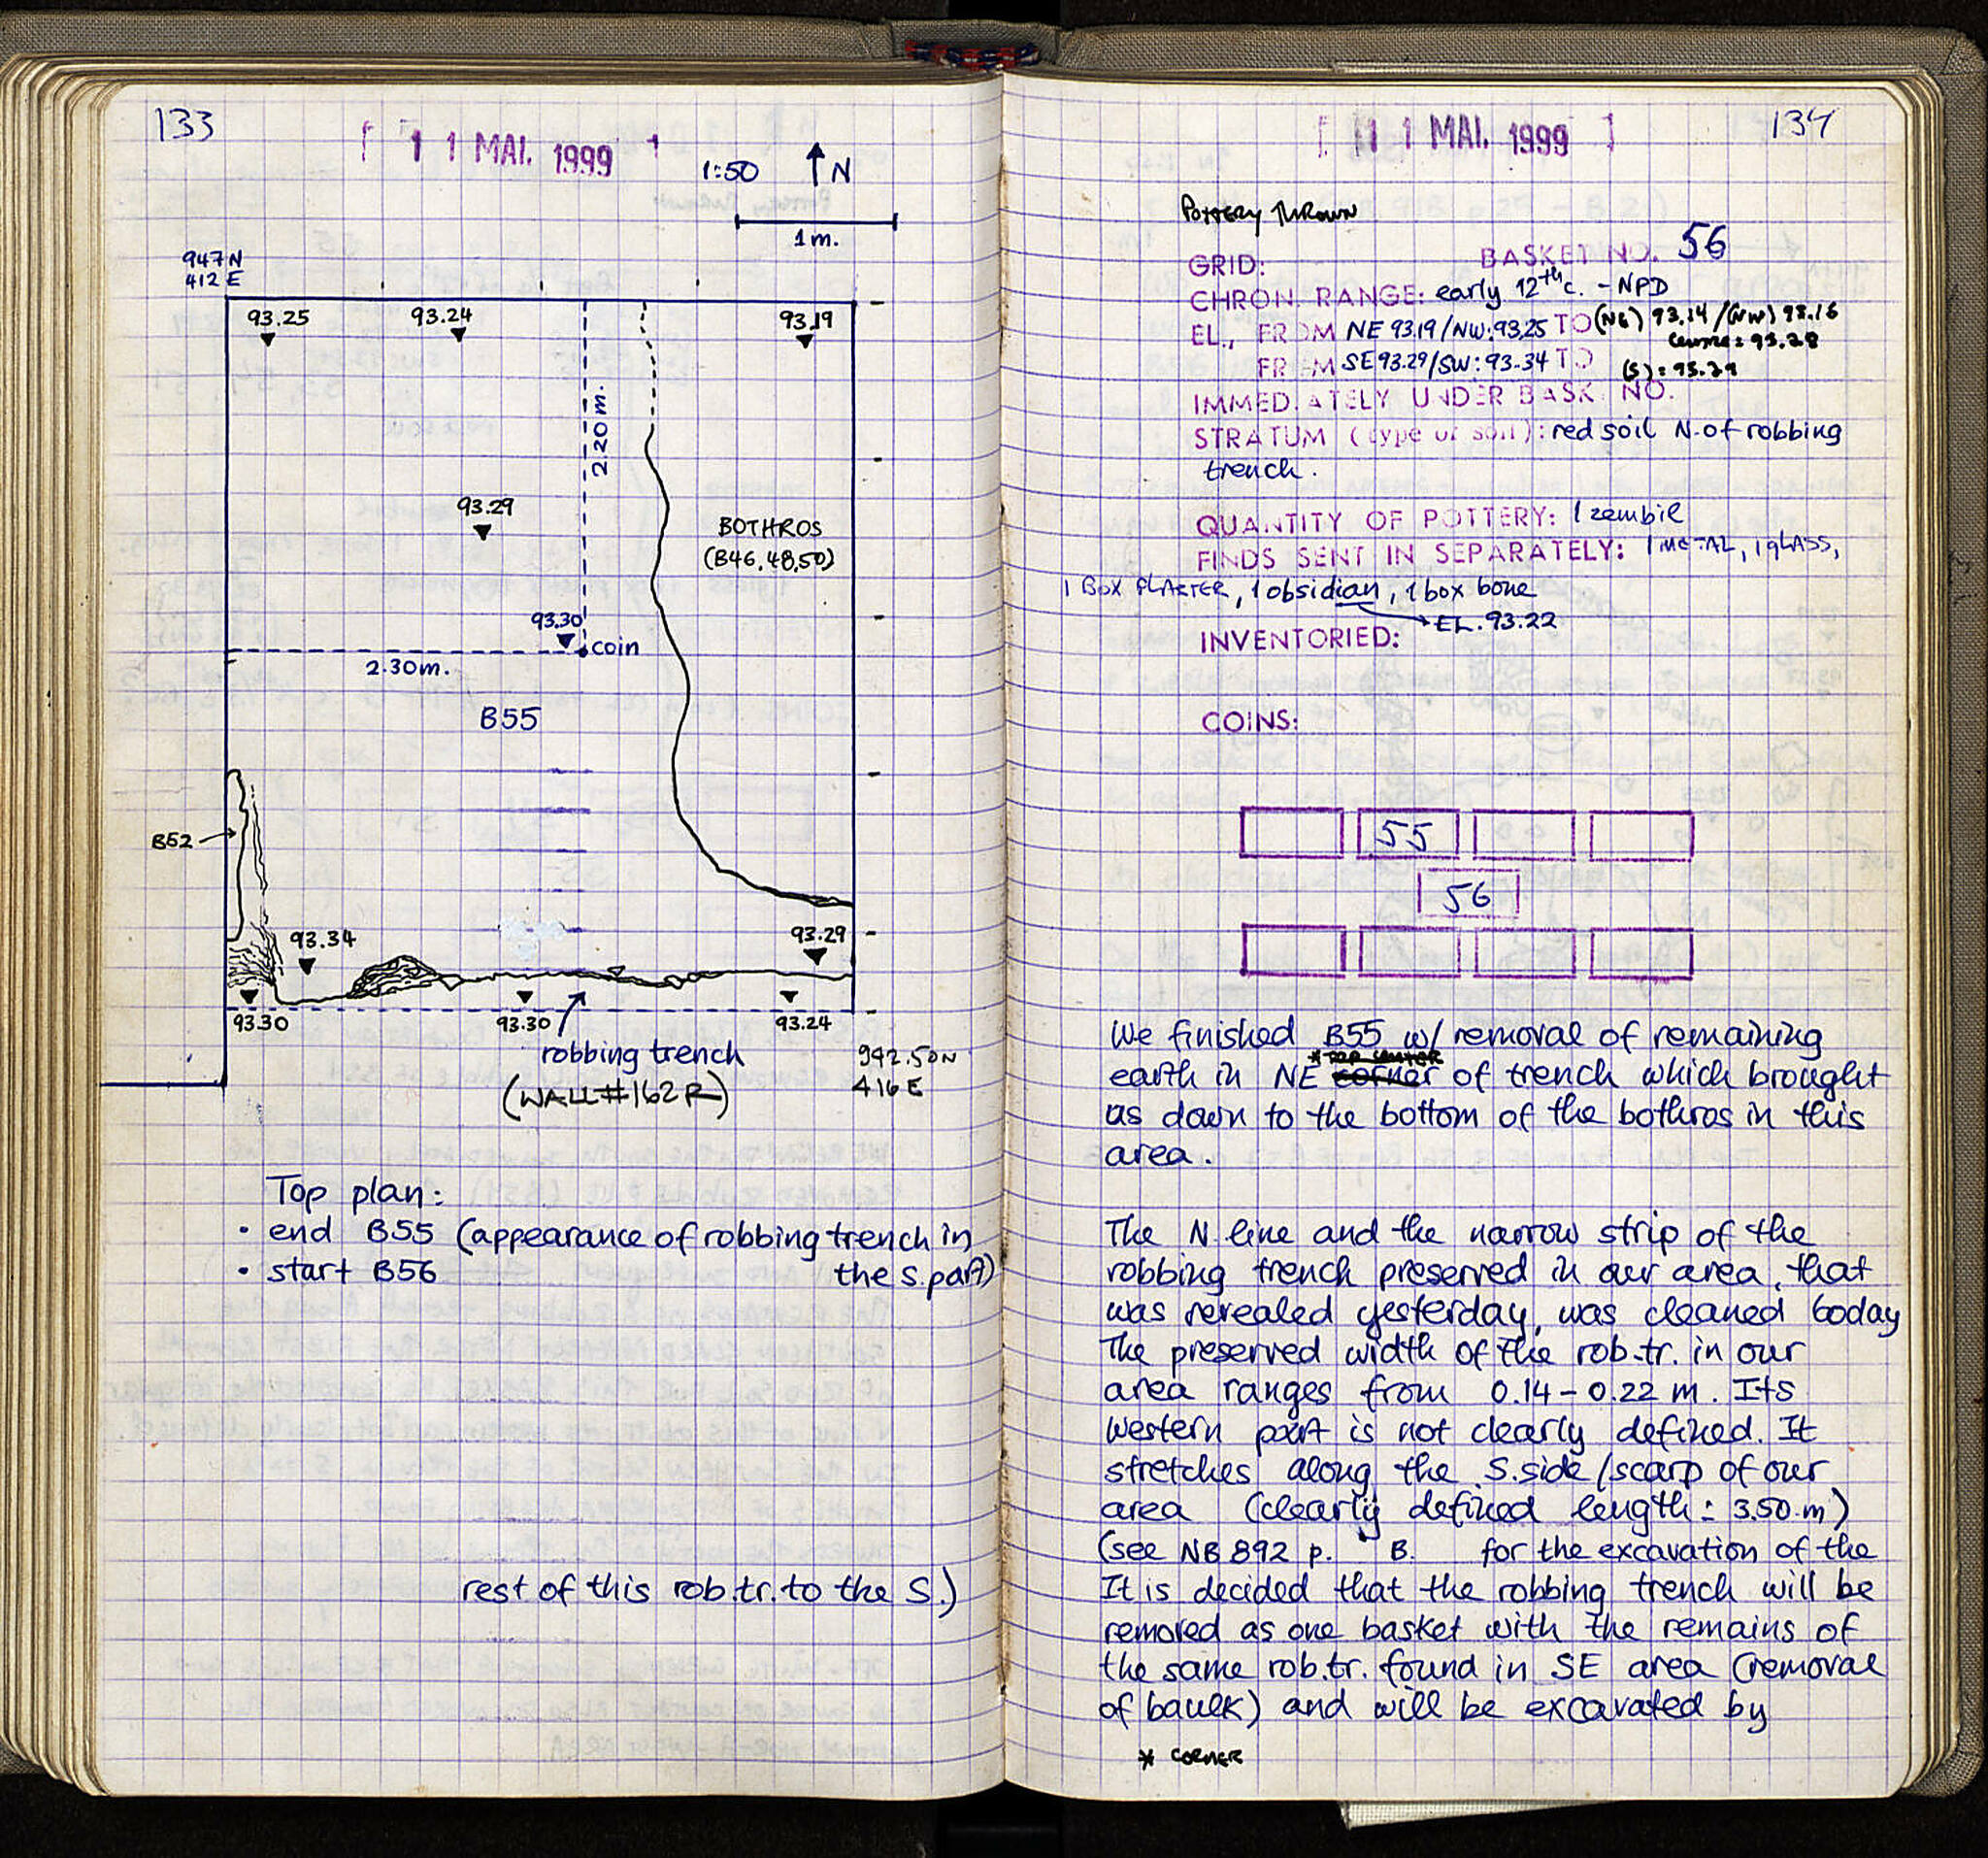 133
11 MAI. 1999
1:50 N
1m.
947 N
412 E
93.25 93.24 93.19
2.20 m.
93.29
BOTHROS
(B46,48,50)
93.30
coin
2.30m.
B55
B52
93.34 93.29
93.30 93.30 93.24
robbing trench
(WALL#162R)
942.50N
416 E
Top plan:
• end B55 (appearance of robbing trench in
the S.part)
• start B56
rest of this rob.tr. to the S.)
134
11 MAI. 1999
POTTERY THROWN
BASKET NO. 56
GRID:
CHRON. RANGE: early 12th c. - NPD
EL., FROM NE 93.19/NW:93.25 TO (NE) 93.14/(NW) 93.16
93.28
FROM SE 93.29/SW: 93.34 TO (S)= 93.29
IMMEDIATELY UNDER BASK. NO.
STRATUM (type of soil): red soil N. of robbing
trench.
QUANTITY OF POTTERY: 1 zembil
FINDS SENT IN SEPARATELY: 1 METAL, 1 gLASS,
1 BOX PLASTER, 1 obsidian, 1 box bone
EL. 93.22
INVENTORIED:
COINS:
55
56
We finished B55 w/ removal of remaining
earth in NE corner of trench which brought
us down to the bottom of the bothros in this
area.
The N line and the narrow strip of the
robbing trench preserved in our area, that
was revealed yesterday, was cleaned today
The preserved width of the rob.tr. in our
area ranges from 0.14-0.22 m. Its
western part is not clearly defined. It
stretches along the S.side/scarp of our
area (clearly defined length: 3.50 m)
(see NB 892 p. B. for the excavation of the
It is decided that the robbing trench will be
removed as one basket with the remains of
the same rob.tr. found in SE area (removal
of baulk) and will be excavated by
* CORNER